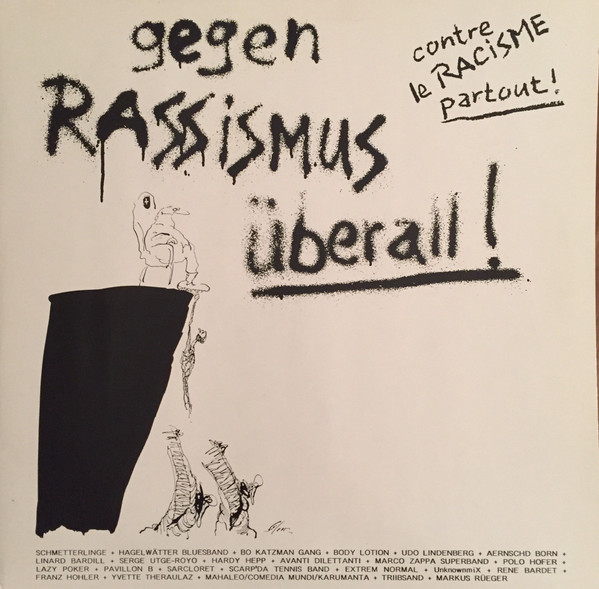 gegen
RASSiSMUS
überall!
contre
le RACiSME
partout!
SCHMETTERLINGE + HAGELWÄTTER BLUESBAND + BO KATZMAN GANG + BODY LOTION + UDO LINDENBERG + AERNSCHD BORN +
LINARD BARDILL + SERGE UTGE-ROYO + HARDY HEPP + AVANTI DILETTANTI + MARCO ZAPPA SUPERBAND + POLO HOFER +
LAZY POKER + PAVILLON B + SARCLORET + SCARP'DA TENNIS BAND + EXTREM NORMAL + UnknownmiX + RENE BARDET +
FRANZ HOHLER + YVETTE THERAULAZ + MAHALEO/COMEDIA MUNDI/KARUMANTA + TRIIBSAND + MARKUS RÜEGER